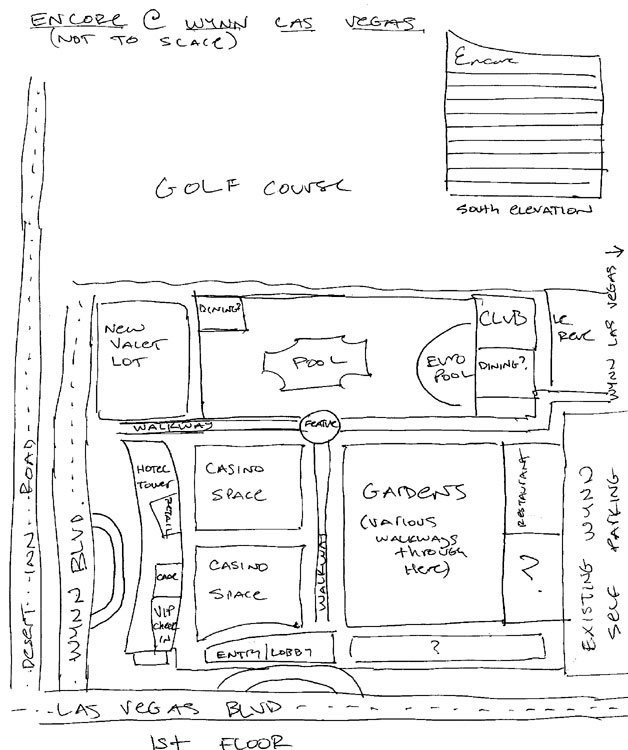 ENCORE @ WYNN LAS VEGAS
(NOT TO SCALE)
Encore
SOUTH ELEVATION
GOLF COURSE
WYNN LAS VEGAS →
NEW
VALET
LOT
DINING?
POOL
EURO
POOL
CLUB
DINING?
LE
REVE
WALKWAY
FEATURE
HOTEL
TOWER
RETAIL
CAGE
VIP
CHECK
IN
CASINO
SPACE
CASINO
SPACE
WALKWAY
GARDENS
(VARIOUS
WALKWAYS
THROUGH
HERE)
RESTAURANT
?
EXISTING WYNN
SELF PARKING
ENTRY/LOBBY
?
DESERT INN ROAD
WYNN BLVD
LAS VEGAS BLVD
1ST FLOOR